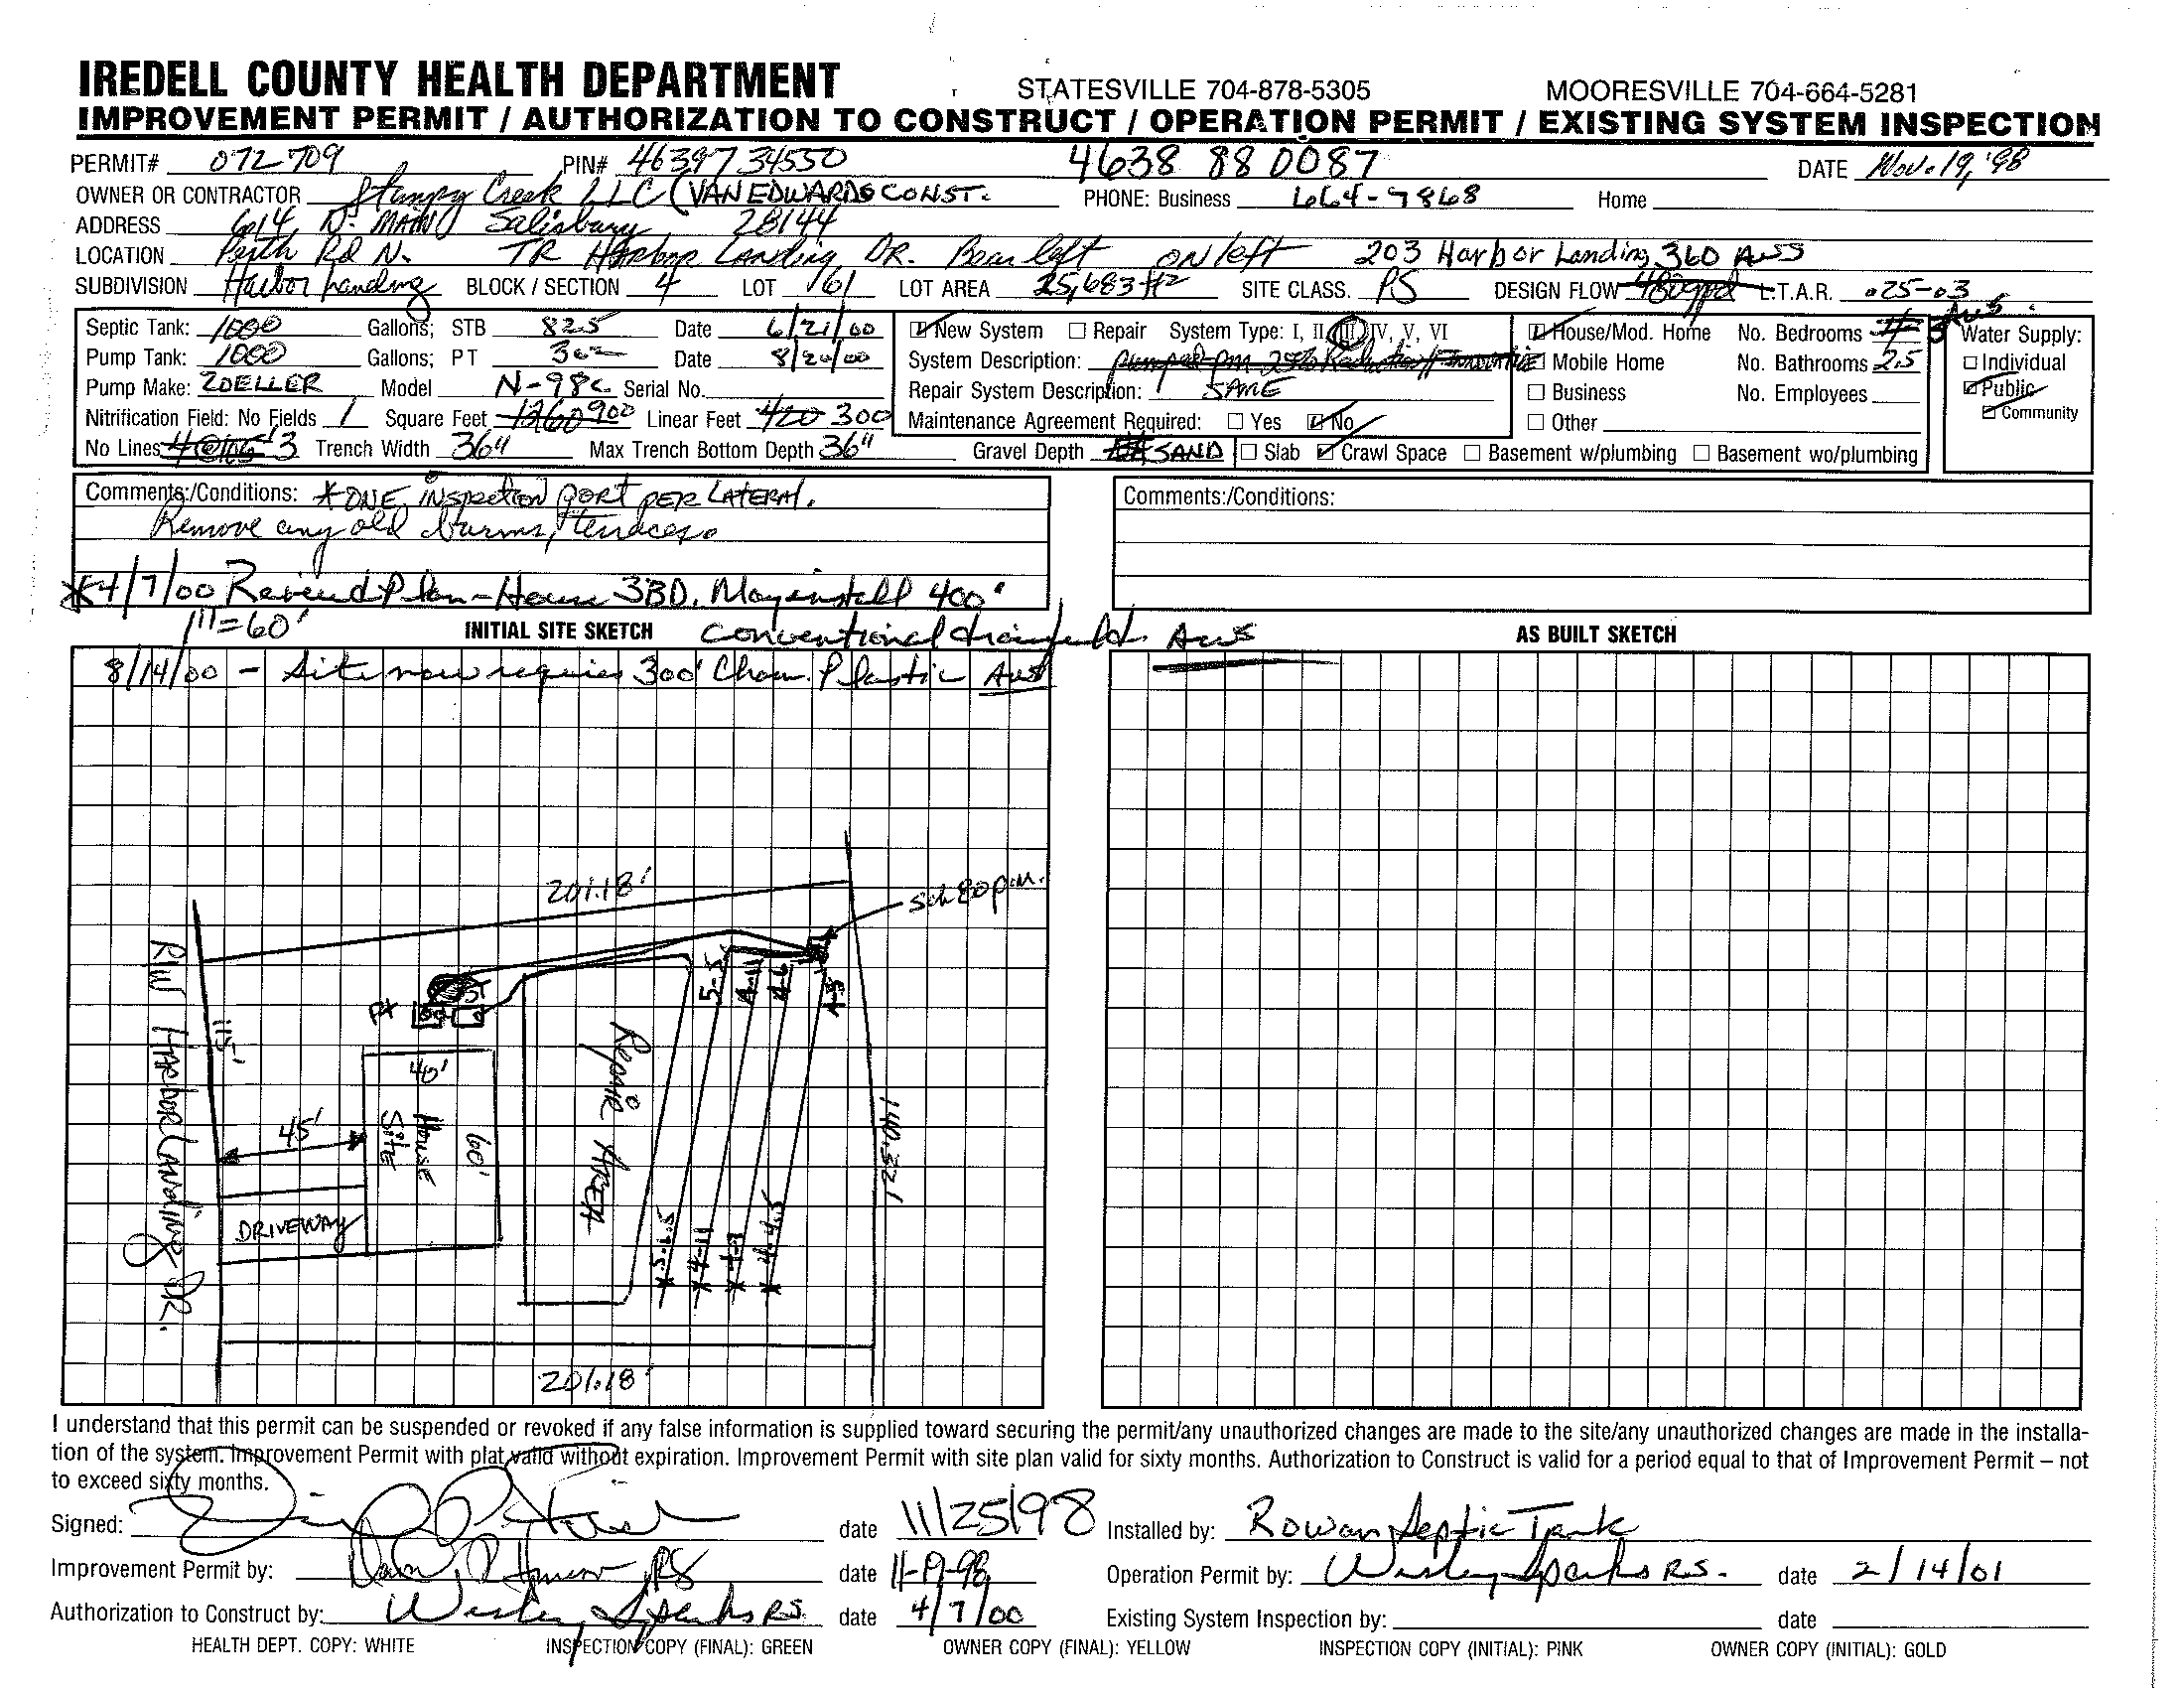 IREDELL COUNTY HEALTH DEPARTMENT STATESVILLE 704-878-5305 MOORESVILLE 704-664-5281
IMPROVEMENT PERMIT / AUTHORIZATION TO CONSTRUCT / OPERATION PERMIT / EXISTING SYSTEM INSPECTION
PERMIT# 072709 PIN# 4639734550 4638 88 0087 DATE Nov. 19, '98
OWNER OR CONTRACTOR Stumpy Creek LLC (VAN EDWARDS CONST. PHONE: Business 664-9868 Home
ADDRESS 614 N. MAIN Salisbury 28144
LOCATION Perth Rd N. TR Harbor Landing DR. Bear left ON left 203 Harbor Landing 360 AWS
SUBDIVISION Harbor Landing BLOCK / SECTION 4 LOT 161 LOT AREA 25,683 ft2 SITE CLASS. PS DESIGN FLOW 480gpd L.T.A.R. .025-03
Septic Tank: 1000 Gallons; STB 825 Date 6/21/00 New System Repair System Type: I, II, III, IV, V, VI House/Mod. Home No. Bedrooms 4 3 AWS Water Supply:
Pump Tank: 1000 Gallons; PT 302 Date 8/20/00 System Description: Mobile Home No. Bathrooms 2.5 Individual
Pump Make: ZOELLER Model N-98c Serial No. Repair System Description: SAME Business No. Employees Public
Nitrification Field: No Fields 1 Square Feet 1260 900 Linear Feet 420 300 Maintenance Agreement Required: Yes No Other Community
No Lines 4@105' 3 Trench Width 36" Max Trench Bottom Depth 36" Gravel Depth SAND Slab Crawl Space Basement w/plumbing Basement wo/plumbing
Comments:/Conditions: *ONE INSPECTION PORT PER LATERAL. Comments:/Conditions:
Remove any old burms, terraces
*4/7/00 Revised Plan-House 3BD. May install 400'
1"=60' INITIAL SITE SKETCH Conventional drainfield. AWS AS BUILT SKETCH
8/14/00 - Site now requires 300' Cham. Plastic AWS
201.18'
sch 80 p.m.
5-5
4-11
4-6
4-3
ST
Pt
115'
R/W Harbor Landing DR.
40'
60'
House Site
45'
DRIVEWAY
Repair AREA
140.32'
5-6.5
4-11
4-4.5
201.18'
I understand that this permit can be suspended or revoked if any false information is supplied toward securing the permit/any unauthorized changes are made to the site/any unauthorized changes are made in the installa-
tion of the system. Improvement Permit with plat valid without expiration. Improvement Permit with site plan valid for sixty months. Authorization to Construct is valid for a period equal to that of Improvement Permit – not
to exceed sixty months.
Signed: date 11/25/98 Installed by: Rowan Septic Tank
Improvement Permit by: RS date 11-19-98 Operation Permit by: Wesley Sparks R.S. date 2/14/01
Authorization to Construct by: Wesley Sparks RS date 4/7/00 Existing System Inspection by: date
HEALTH DEPT. COPY: WHITE INSPECTION COPY (FINAL): GREEN OWNER COPY (FINAL): YELLOW INSPECTION COPY (INITIAL): PINK OWNER COPY (INITIAL): GOLD